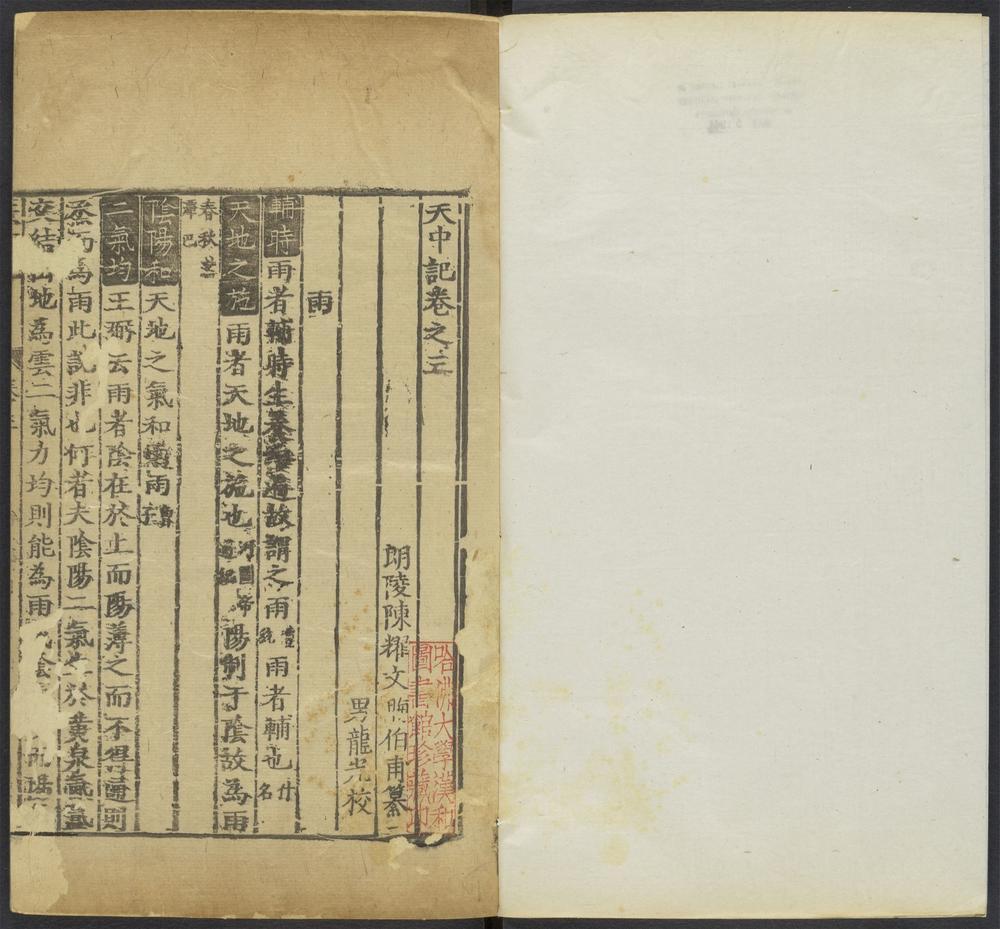 天中記卷之三
朗陵陳耀文晦伯甫纂
男龍光校
哈佛大學漢和
圖書館珍藏印
雨
輔時雨者輔時生養故謂之雨 雨者輔也
天地之施雨者天地之施也河圖帝通紀陽制于陰故為雨
春秋
潭巴
陰陽和天地之氣和雨
二氣均王弼云雨者陰在於上而陽薄之而不得通則
烝而為雨此說非也何者夫陰陽二氣生於黃泉
交結 地為雲二氣力均則能為雨 陰